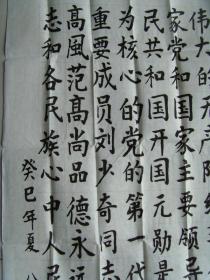 伟大的
家党和国家主要领导
民共和国开国元勋是
为核心的党的第一代
重要成员刘少奇同志
高風范高尚品德永远
志和各民族心中人民
癸巳年夏 八